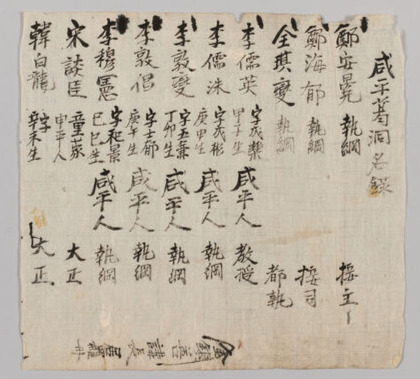 咸平著洞名錄
鄭安冕 執綱 接主
鄭海郁 執綱 接司
全琪燮 執綱 都執
李儒英 字成 甲子生 咸平人 教授
李儒洙 字成彬 庚申生 咸平人 執綱
李敦燮 字五 丁卯生 咸平人 執綱
李敦侶 字士郁 庚午生 咸平人 執綱
李穆憲 字和景 巳巳生 咸平人 執綱
宋談臣 童蒙 申平人 大正
韓白龍 字 辛未生 大正